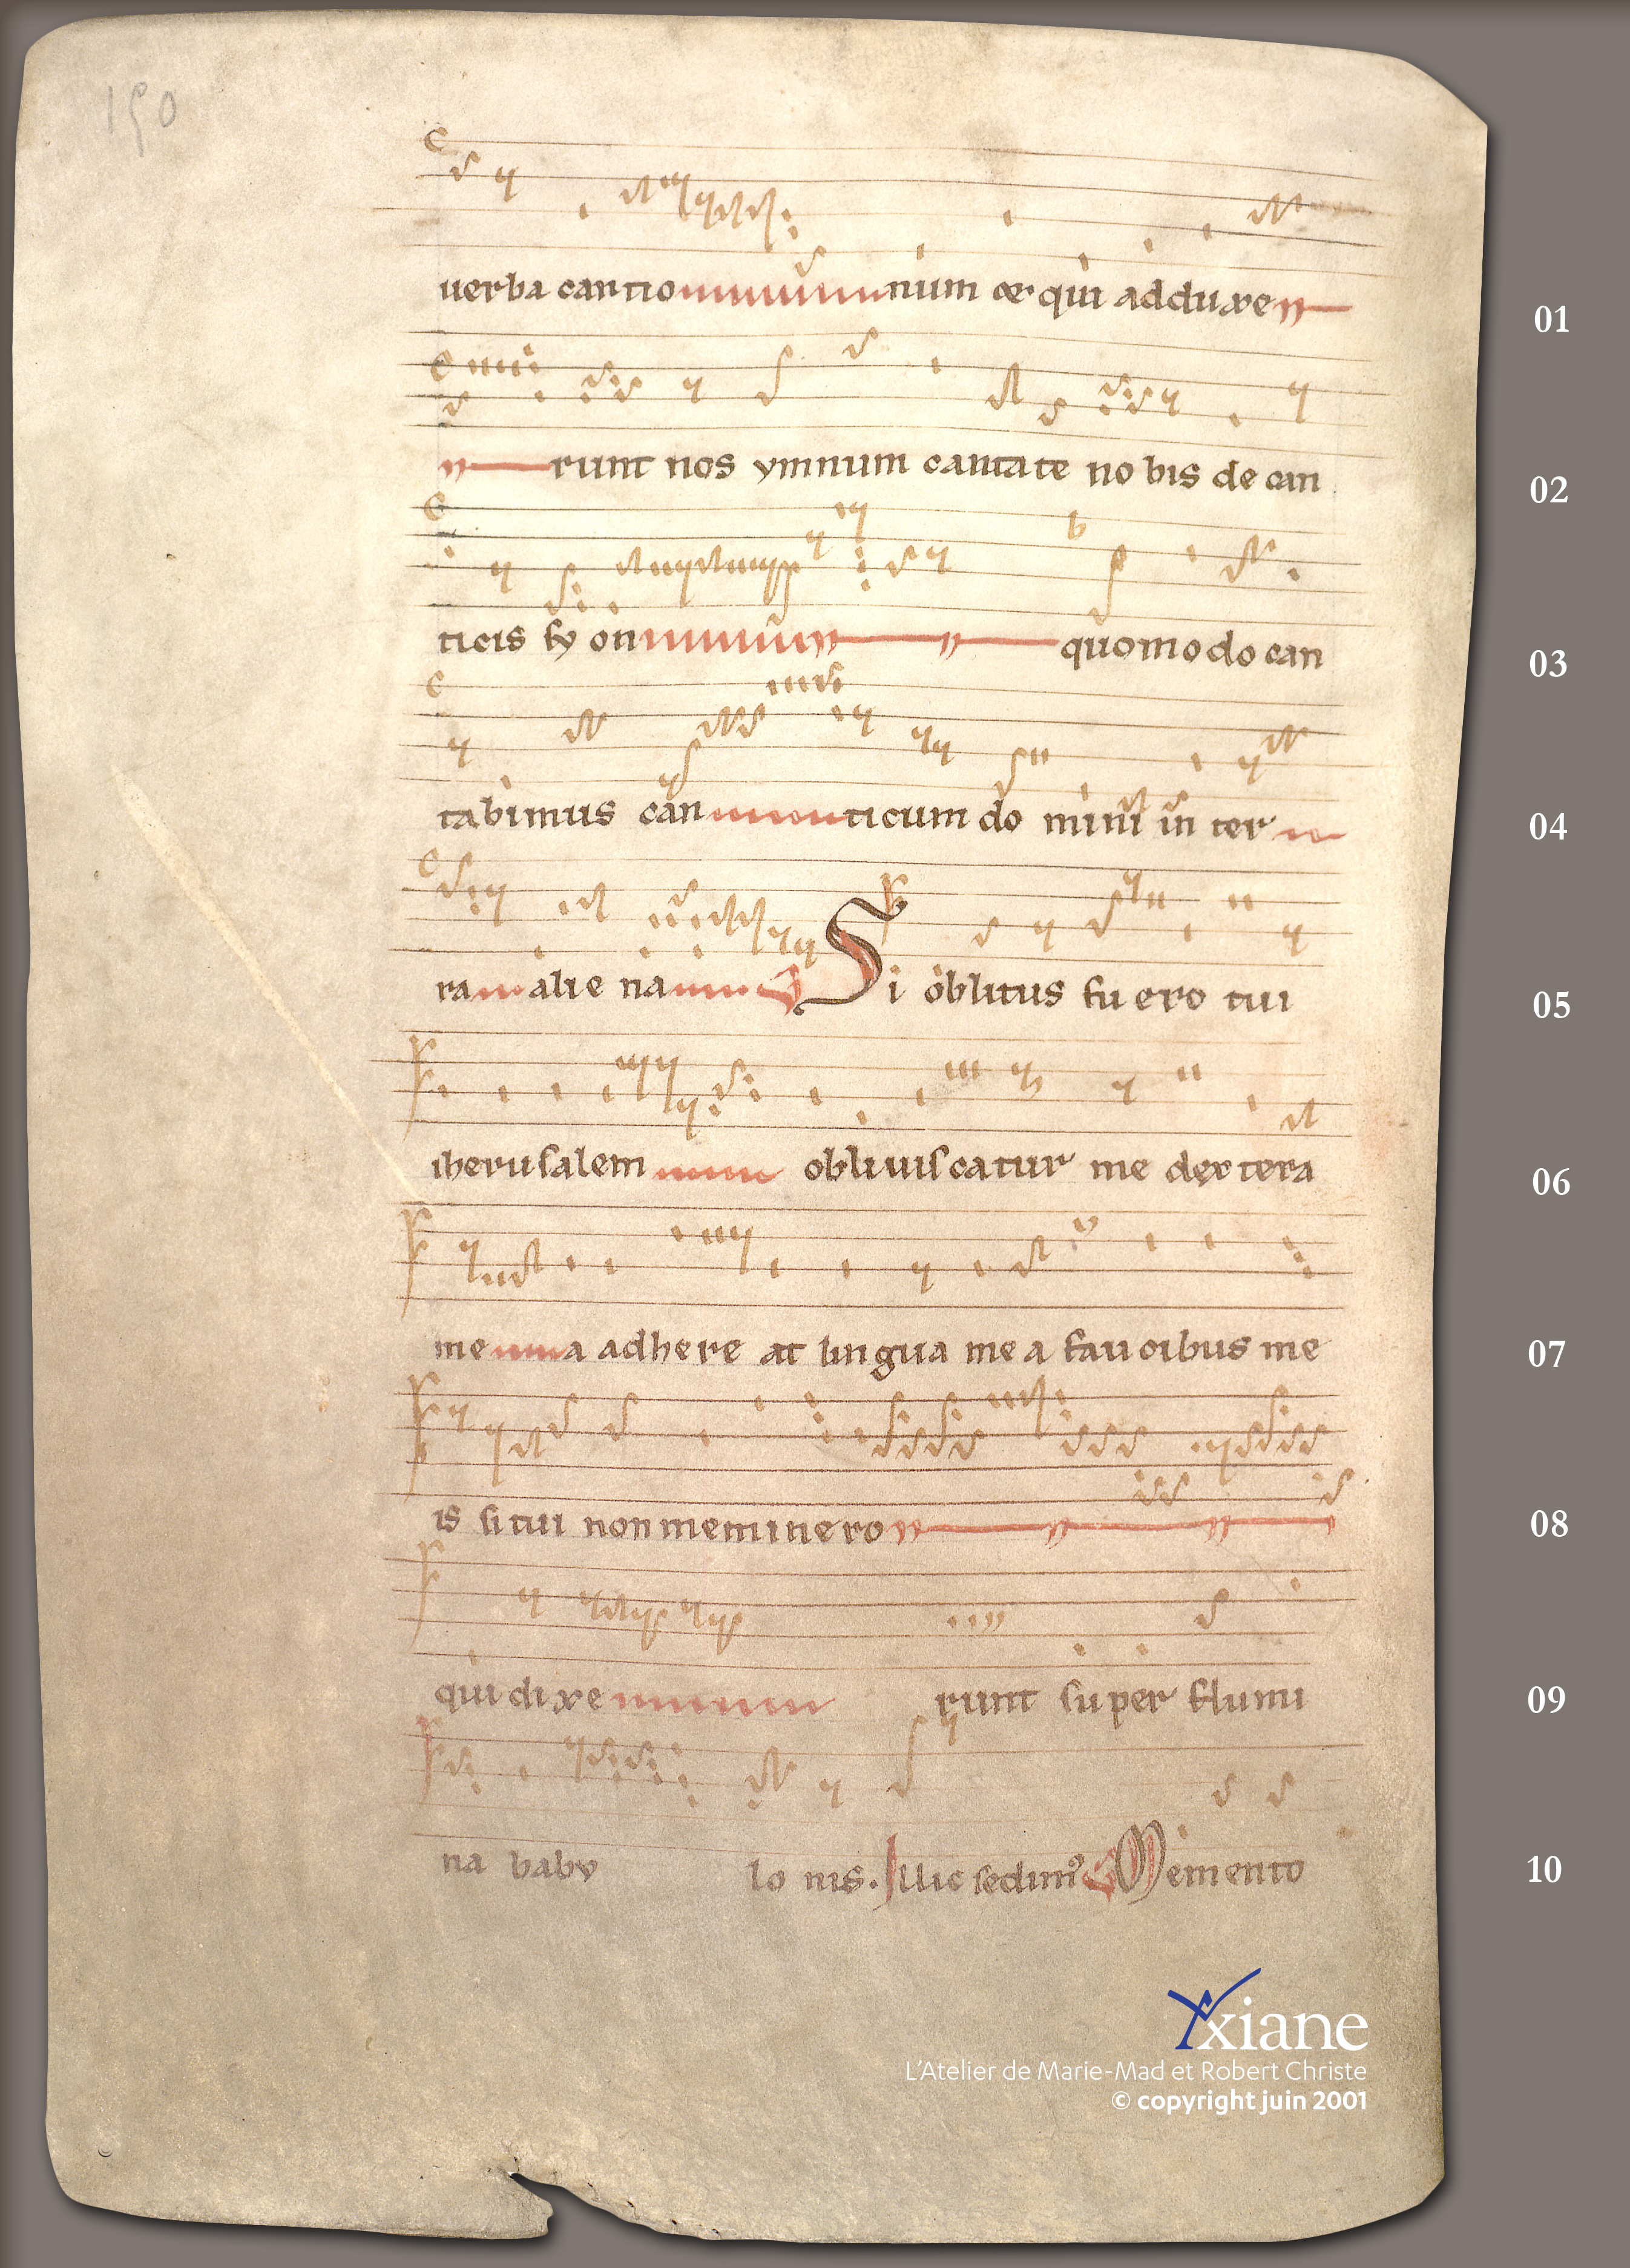 150
uerba cantionum et qui adduxe
01
runt nos ymnum cantate no bis de can
02
ticis sy on quomodo can
03
tabimus can ticum do mini in ter
04
ra alie na Si oblitus fu ero tui
05
iherusalem obliuiscatur me dextera
06
me a adhere at lingua me a faucibus me
07
is si tui non meminero
08
qui dixe runt super flumi
09
na baby lo nis. Illic sedim⁹ Memento
10
Yxiane
L'Atelier de Marie-Mad et Robert Christe
© copyright juin 2001